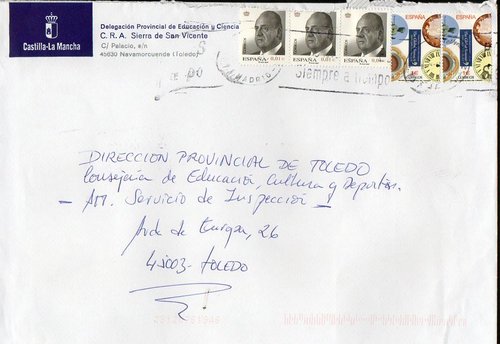 Castilla-La Mancha
Delegación Provincial de Educación y Ciencia
C. R. A. Sierra de San Vicente
C/ Palacio, s/n
45630 Navamorcuende (Toledo)
ESPAÑA
ESPAÑA
ESPAÑA
ESPAÑA
ESPAÑA
MADRID
Siempre a tiempo
DIRECCION PROVINCIAL DE TOLEDO
Consejería de Educación, Cultura y Deportes.
- Att. Servicio de Inspección -
Avda de Europa, 26
45003 - TOLEDO